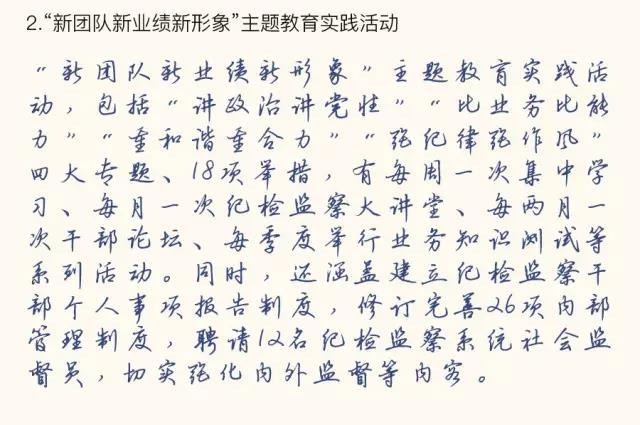 2.“新团队新业绩新形象”主题教育实践活动
“新团队新业绩新形象”主题教育实践活
动，包括“讲政治讲党性”“比业务比能
力”“重和谐重合力”“强纪律强作风”
四大专题、18项举措，有每周一次集中学
习、每月一次纪检监察大讲堂、每两月一
次干部论坛、每季度举行业务知识测试等
系列活动。同时，还涵盖建立纪检监察干
部个人事项报告制度，修订完善26项内部
管理制度，聘请12名纪检监察系统社会监
督员，切实强化内外监督等内容。